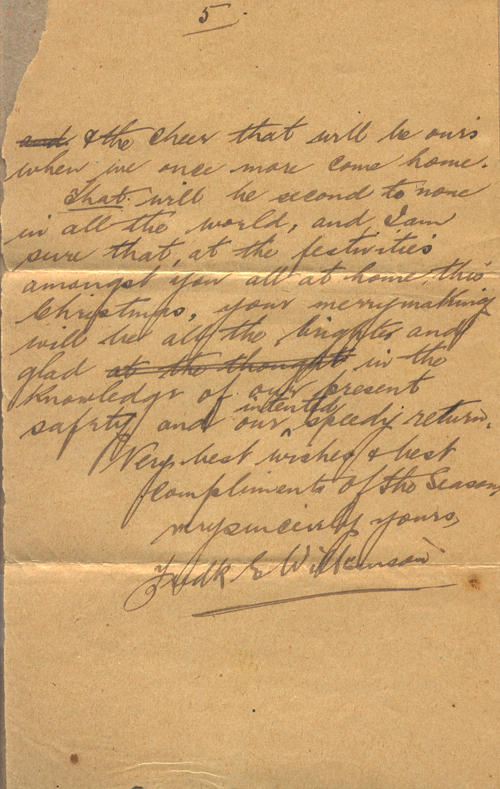 5.
and. & the cheer that will be ours
when we once more come home.
That will be second to none
in all the world, and I am
sure that, at the festivities
amongst you all at home this
Christmas, your merrymaking
will be all the brighter and
glad at the thought in the
knowledge of our present
intented
safety and our speedy return.
Very best wishes & best
compliments of the Season
my sincerely yours,
Fredk E Wilkinson